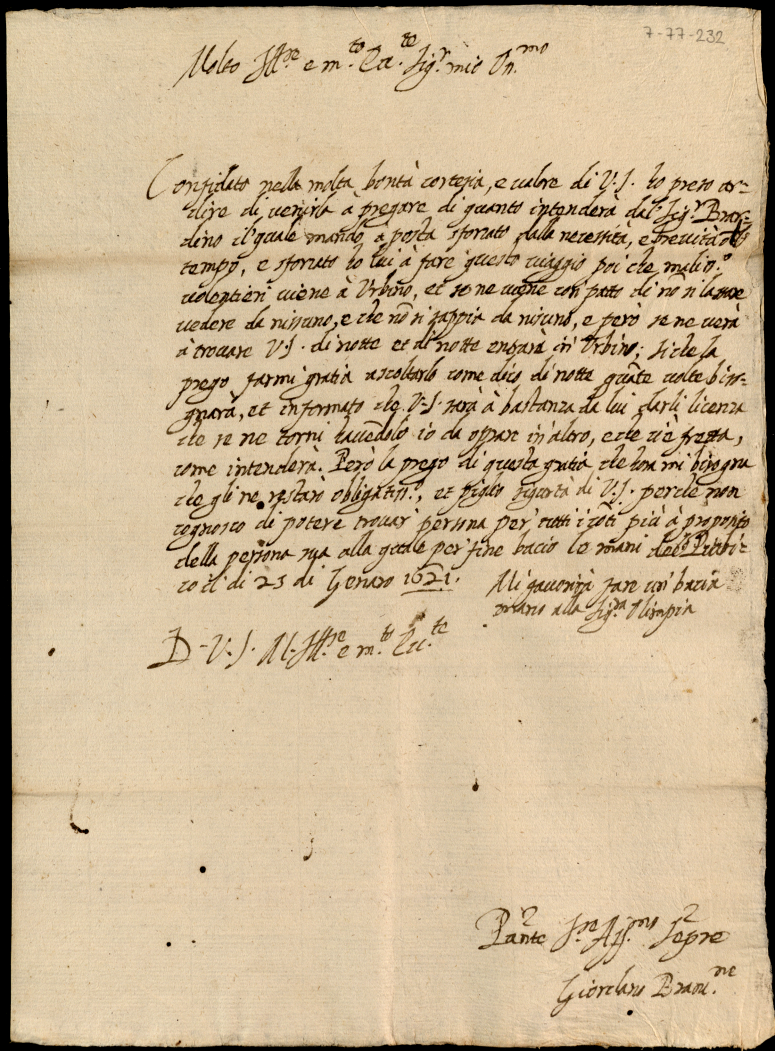 7-77-232
Molto Ill.re e m.to Ecc.te Sig.r mio On.mo
Confidato nella molta bontà cortesia, e valore di V.S. ho preso ar-
dire di venirla à pregare di quanto intenderà dal Sig.r Bran-
dino il quale mando à posta sforzato dalla necessità, e brevità
tempo, e sforzato ho lui à fare questo viaggio poi che mal
volentieri viene à Urbino, et se ne viene con patto di nō si lassare
vedere da nissuno, e che nō si sappia da nisuno, e però se ne verà
à trovare V.S. di notte et di notte entrarà in Urbino; si che la
prego farmi gratia ascoltarlo come dico di notte quāte volte biso-
gnarà, et informato che V.S. sarà à bastanza da lui darli licenza
che se ne torni havēdolo io da oprare in altro, e che c'è fretta,
come intenderà. Però la prego di questa gratia che hora mi bisogna
che gli ne restarò obligatiss.o, et piglio sicurtà di V.S. perche non
cognosco di potere trovar persona per tutti i cōti più à proposito
della persona sua alla quale per fine bacio le mani
co il di 25 di Genaro 1621. Mi favorirà fare un bacia
mano alla Sig.ra Olimpia
D. V.S. M. Ill.re e m.to Ecc.te
Par.te S.re Aff.mo Sepre
Giordano